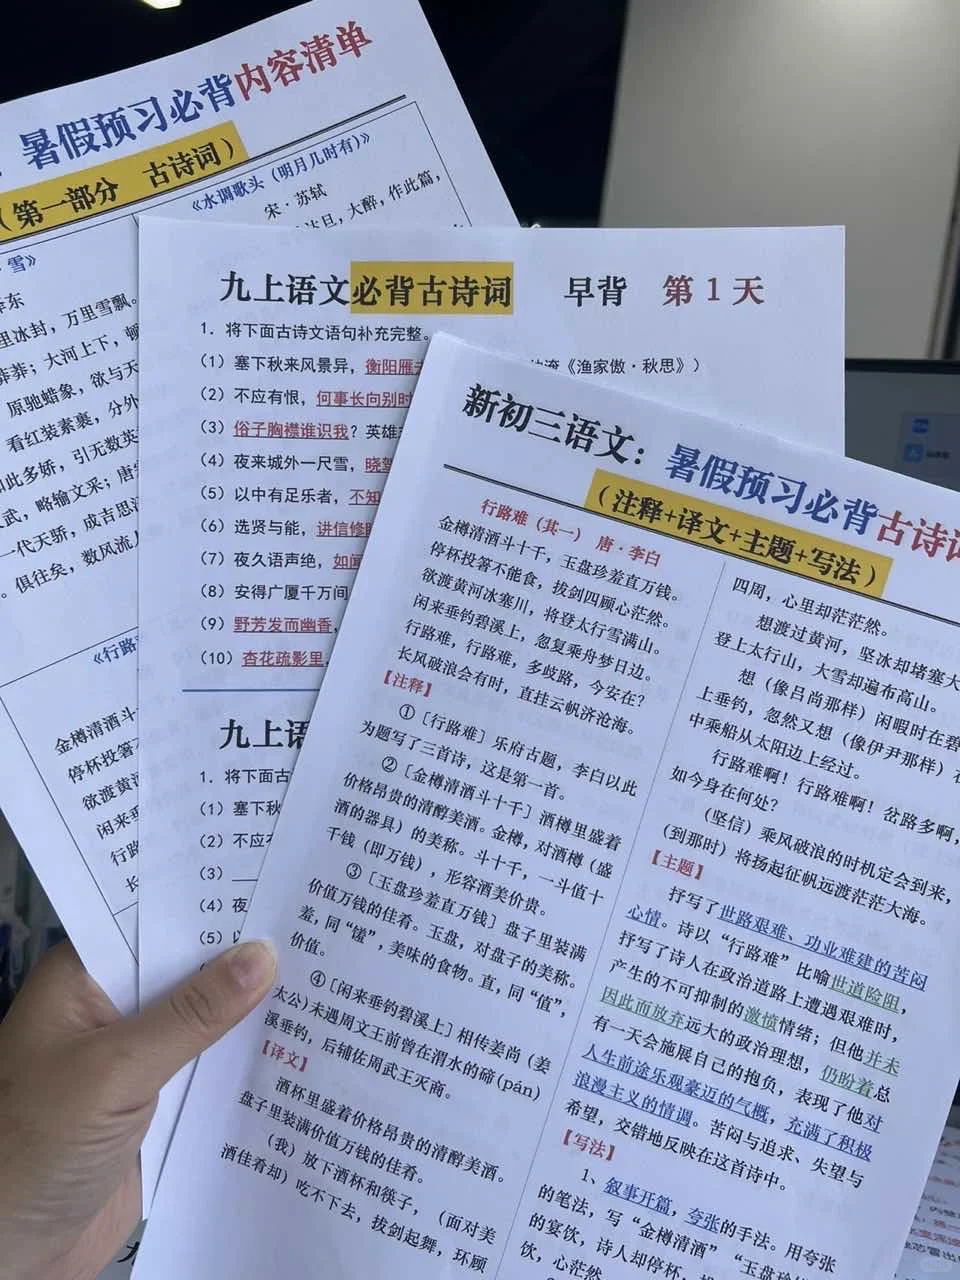 暑假预习必背内容清单
(第一部分 古诗词)
《水调歌头(明月几时有)》
宋·苏轼
达旦,大醉,作此篇,
雪》
里冰封,万里雪飘。
莽莽;大河上下,顿
原驰蜡象,欲与天
看红装素裹,分外
如此多娇,引无数英
武,略输文采;唐宗
一代天骄,成吉思汗
。俱往矣,数风流人
《行路
金樽清酒斗十
停杯投箸不
欲渡黄河
闲来垂
行路
长
九上语文必背古诗词 早背 第1天
1. 将下面古诗文语句补充完整。
(1)塞下秋来风景异,衡阳雁去
《渔家傲·秋思》)
(2)不应有恨,何事长向别时
(3)俗子胸襟谁识我?英雄
(4)夜来城外一尺雪,晓驾
(5)以中有足乐者,不知
(6)选贤与能,讲信修睦
(7)夜久语声绝,如闻
(8)安得广厦千万间
(9)野芳发而幽香,
(10)杏花疏影里,
九上语
1. 将下面古
(1)塞下秋
(2)不应
(3)
(4)夜
(5)以
新初三语文:暑假预习必背古诗词
(注释+译文+主题+写法)
行路难(其一) 唐·李白
金樽清酒斗十千,玉盘珍羞直万钱。
停杯投箸不能食,拔剑四顾心茫然。
欲渡黄河冰塞川,将登太行雪满山。
闲来垂钓碧溪上,忽复乘舟梦日边。
行路难,行路难,多歧路,今安在?
长风破浪会有时,直挂云帆济沧海。
【注释】
①[行路难]乐府古题,李白以此
为题写了三首诗,这是第一首。
②[金樽清酒斗十千]酒樽里盛着
价格昂贵的清醇美酒。金樽,对酒樽(盛
酒的器具)的美称。斗十千,一斗值十
千钱(即万钱),形容酒美价贵。
③[玉盘珍羞直万钱]盘子里装满
价值万钱的佳肴。玉盘,对盘子的美称。
羞,同“馐”,美味的食物。直,同“值”,
价值。
④[闲来垂钓碧溪上]相传姜尚(姜
太公)未遇周文王前曾在渭水的磻(pán)
溪垂钓,后辅佐周武王灭商。
【译文】
酒杯里盛着价格昂贵的清醇美酒。
盘子里装满价值万钱的佳肴。
(我)放下酒杯和筷子,(面对美
酒佳肴却)吃不下去,拔剑起舞,环顾
四周,心里却茫茫然。
想渡过黄河,坚冰却堵塞大
登上太行山,大雪却遍布高山。
想(像吕尚那样)闲暇时在碧
上垂钓,忽然又想(像伊尹那样)在
中乘船从太阳边上经过。
行路难啊!行路难啊!岔路多啊,
如今身在何处?
(坚信)乘风破浪的时机定会到来,
(到那时)将扬起征帆远渡茫茫大海。
【主题】
抒写了世路艰难、功业难建的苦闷
心情。诗以“行路难”比喻世道险阻,
抒写了诗人在政治道路上遭遇艰难时,
产生的不可抑制的激愤情绪;但他并未
因此而放弃远大的政治理想,仍盼着总
有一天会施展自己的抱负,表现了他对
人生前途乐观豪迈的气概,充满了积极
浪漫主义的情调。苦闷与追求、失望与
希望,交错地反映在这首诗中。
【写法】
1、叙事开篇,夸张的手法。用夸张
的笔法,写“金樽清酒”“玉盘珍
的宴饮,诗人却停杯、投
饮,心茫然